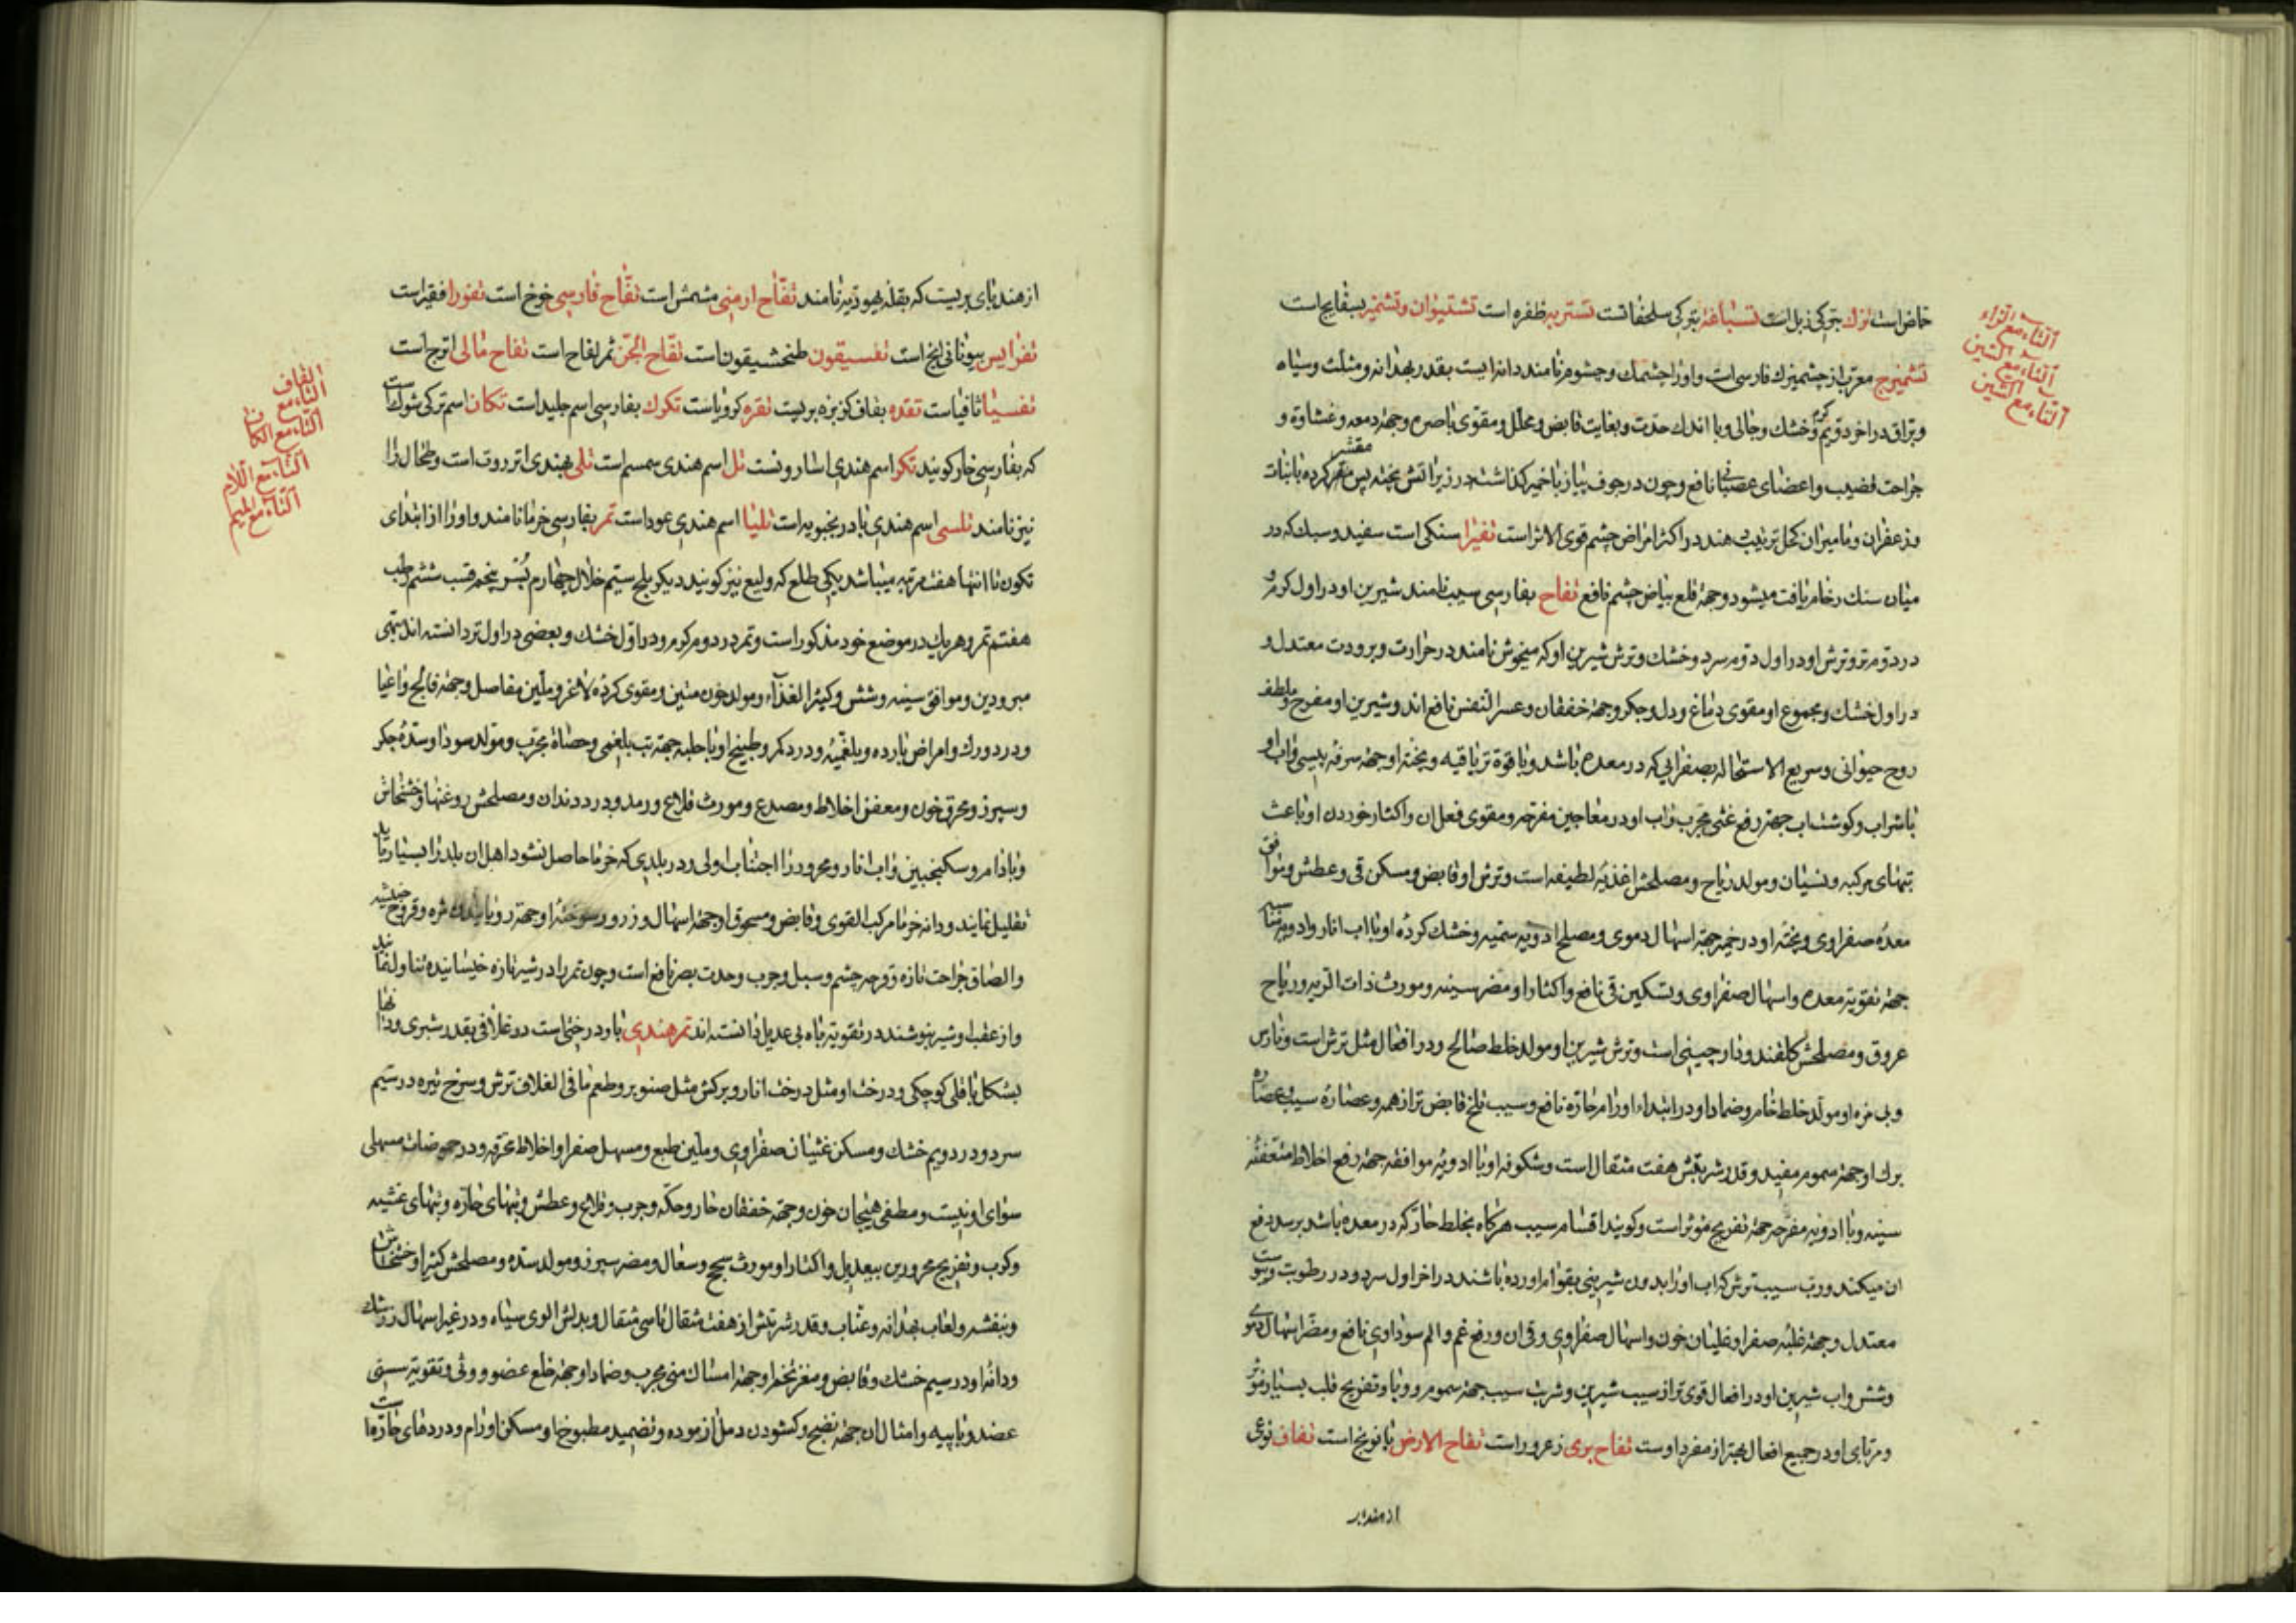 خاص است ترك بتركی زبل است تسباغه بتركی سلحفات است تستریه ظفره است تشتیوان و تشمیز بسفایج است
تشمیزج معرب از چشمیزك فارسی است و او را چشمك و چشوم نامند دانه ایست بقدر بهدانه و مثلث و سیاه
و براق در اخر دویم گرم و خشك و جالی و با اندك حدت و بغایت قابض و محلل و مقوی باصره و جهة دمعه و غشاوة و
جراحت قضیب و اعضای عصبانی نافع و چون در جوف پیاز یا خمیر گذاشته در زیر اتش پخته پس مقشر كرده با نبات
و زعفران و مامیران كحل ترتیب دهند در اكثر امراض چشم قوی الاثر است تفیرا سنكی است سفید و سبك كه در
میان سنك رخام یافت میشود و جهة قلع بیاض چشم نافع تفاح بفارسی سیب نامند شیرین او در اول كرم و
در دوم تر و ترش او در اول دوم سرد و خشك و ترش شیرین او كه میخوش نامند در حرارت و برودت معتدل و
در اول خشك و مجموع او مقوی دماغ و دل و جكر و جهة خفقان و عسر النفس نافع اند و شیرین او مفرح و ملطف
روح حیوانی و سریع الاستحاله بصفرایی كه در معده باشد و با قوة تریاقیه و پخته او جهة سرفه یبسی و اب او
با شراب و كوشتاب جهة رفع غشی مجرب و اب او در معاجین مفرحه و مقوی فعل ان و اكثار خوردن او باعث
تبهای مركبه و نسیان و مولد ریاح و مصلحش اغذیه لطیفه است و ترش او قابض و مسكن قی و عطش و موافق
معده صفراوی و پخته او در خمیر جهة اسهال دموی و مصلح ادویه سمیه و خشك كرده او با اب انار و ادویه مناسبه
جهة تقویة معده و اسهال صفراوی و تسكین قی نافع و اكثار او مضر سینه و مورث ذات الریه و ریاح
عروق و مصلحش كلقند و دارچینی است و ترش شیرین او مولد خلط صالح و در افعال مثل ترش است و نارس
و بی مزه او مولد خلط خام و ضماد او در ابتداء اورام حاره نافع و سیب تلخ قابض تر از همه و عصاره سیب و عصاره
برك او جهة سموم مفید و قدر شربتش هفت مثقال است و شكوفه او با ادویه موافقه جهة رفع اخلاط متعفنه
سینه و با ادویه مفرحه جهة تفریح موثر است و كویند اقسام سیب هركاه بخلط حار كه در معده باشد برسد دفع
ان میكند و رب سیب ترش كه اب او را بدون شیرینی بقوام اورده باشند در اخر اول سرد و در رطوبت و یبوست
معتدل و جهة غلبه صفرا و غلیان خون و اسهال صفراوی و قی ان و رفع غم و الم سوداوی نافع و مضر اسهال دموی
و شش و اب شیرین او در افعال قوی تر از سیب شیرین و شربت سیب جهة سموم و وبا و تفریح قلب بسیار موثر
و مربای او در جمیع افعال بهتر از مفرد اوست تفاح بری زعرور است تفاح الارض بابونج است تفاف نوعی
از هندبا
التاء مع الراء
التاء مع السین
التاء مع الشین
از هندبای بریست كه بقله یهودیه نامند تفاح ارمنی مشمش است تفاح فارسی خوخ است تفورا فقیر است
تفرایس بیونانی لنج است تفسیقون طنحشیقون است تفاح الجن ثمر لفاح است تفاح مائی اترج است
تفسیا ثافیاست تقده بقاف كزبزه بریست تقره كرویاست تكرك بفارسی اسم جلید است تكان اسم تركی شوك است
كه بفارسی خار كویند تكر اسم هندی اسارونست تل اسم هندی سمسم است تلی بهندی انزروت است و طحال را
نیز نامند تلسی اسم هندی بادرنجبویه است تلیا اسم هندی عود است تمر بفارسی خرما نامند و او را از ابتدای
تكون تا انتها هفت مرتبه میباشد یكی طلع كه ولیع نیز كویند دیكر بلح سیم خلال چهارم بسر پنجم قسب ششم رطب
هفتم تمر و هریك در موضع خود مذكور است و تمر در دوم كرم و در اول خشك و بعضی در اول تر دانسته اند مبهی
مبرودین و موافق سینه و شش و كثیر الغذاء و مولد خون متین و مقوی كرده لاغر و ملین مفاصل و جهة فالج و اعیا
و درد ورك و امراض بارده و بلغمیه و درد كمر و طبیخ او با حلبه جهة تب بلغمی و حصاة مجرب و مولد سودا و سده جكر
و سپرز و محرق خون و معفن اخلاط و مصدع و مورث قلاع و رمد و درد دندان و مصلحش روغنها و خشخاش
و بادام و سكنجبین و اب انار و محرور را اجتناب اولی و در بلدی كه خرما حاصل نشود اهل ان بلد را بسیار باید
تقلیل نمایند و دانه خرما مركب القوی و قابض و مسحوق او جهة اسهال و زرور سوخته او جهة رویانیدن مژه و قروح خبیثه
و الصاق جراحت تازه و قرحه چشم و سبل و جرب و حدت بصر نافع است و چون تمر را در شیر تازه خیسانیده تناول نمایند
و از عقب او شیر بنوشند در تقویة باه بی عدیل دانسته اند تمر هندی بار درختی است در غلافی بقدر شبری و دانها
بشكل باقلی كوچكی و درخت او مثل درخت انار و بركش مثل صنوبر و طعم ما فی الغلاف ترش و سرخ تیره در سیم
سرد و در دویم خشك و مسكن غثیان صفراوی و ملین طبع و مسهل صفرا و اخلاط محترقه و در حموضات مسهلی
سوای او نیست و مطفی هیجان خون و جهة خفقان حار و حكه و جرب و قلاع و عطش و تبهای حاره و تبهای غشیه
و كرب و تفریح محرورین بیعدیل و اكثار او مورث سحج و سعال و مضر سپرز و مولد سده و مصلحش كثیرا و خشخاش
و بنفشه و لعاب بهدانه و عناب و قدر شربتش از هفت مثقال تا سی مثقال و بدلش الوی سیاه و در غیر اسهال زرشك
و دانه او در سیم خشك و قابض و مغز تخم او جهة امساك منی مجرب و ضماد او جهة خلع عضو و وثی و تقویة سستی
عضد و با پیه و امثال ان جهة نضج و كشودن دمل ازموده و تضمید مطبوخ او مسكن اورام و درد های حاره است
التاء مع القاف
التاء مع الكاف
التاء مع اللام
التاء مع المیم